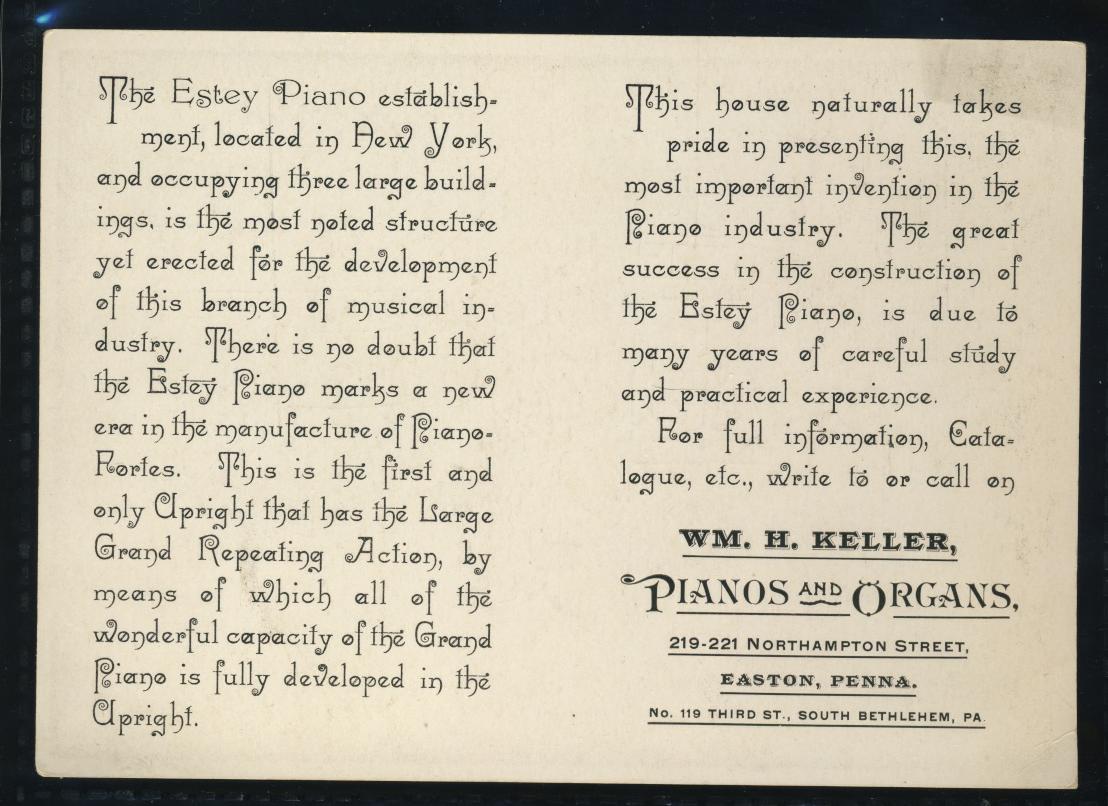 The Estey Piano establish-
ment, located in New York,
and occupying three large build-
ings, is the most noted structure
yet erected for the development
of this branch of musical in-
dustry. There is no doubt that
the Estey Piano marks a new
era in the manufacture of Piano-
Fortes. This is the first and
only Upright that has the Large
Grand Repeating Action, by
means of which all of the
wonderful capacity of the Grand
Piano is fully developed in the
Upright.
This house naturally takes
pride in presenting this, the
most important invention in the
Piano industry. The great
success in the construction of
the Estey Piano, is due to
many years of careful study
and practical experience.
For full information, Cata-
logue, etc., write to or call on
WM. H. KELLER,
PIANOS AND ORGANS,
219-221 NORTHAMPTON STREET,
EASTON, PENNA.
No. 119 THIRD ST., SOUTH BETHLEHEM, PA.